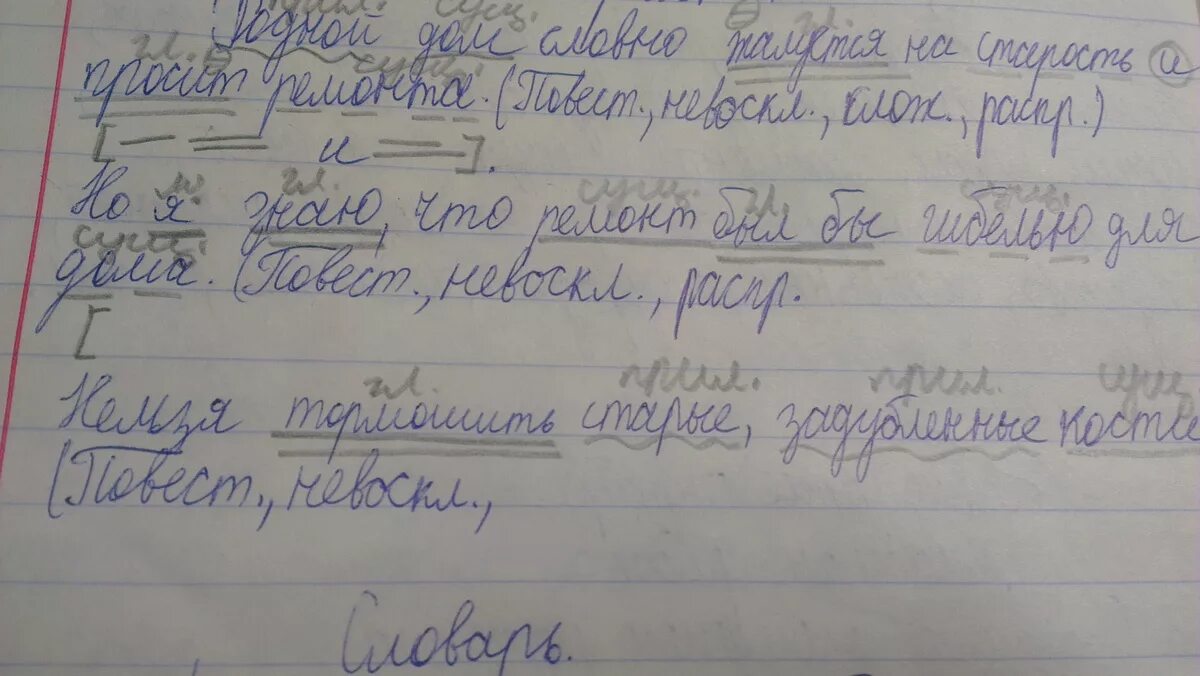 прил. сущ. гл.
Родной дом словно жалуется на старость и
гл. сущ.
просит ремонта. (Повест., невоскл., слож., распр.)
[— = и =].
м. гл. сущ. гл. сущ.
Но я знаю, что ремонт был бы гибелью для
сущ.
дома. (Повест., невоскл., распр.
[
гл. прил. прил. сущ
Нельзя тормошить старые, задубленные кости
(Повест., невоскл.,
Словарь.